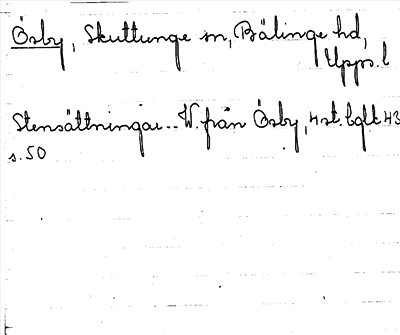 Ösby, Skuttunge sn, Bälinge hd,
Upps. l
Stensättningar.. W. från Ösby, 4 st. bglt 43
s. 50